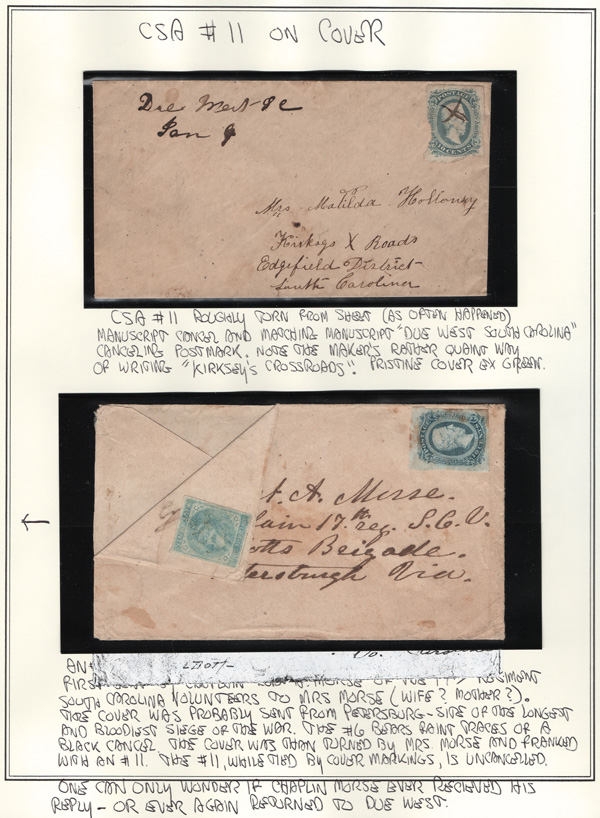 CSA #11 ON COVER
Due West SC
Jan 9
POSTAGE
10 CENTS
Mrs Matilda Holloway
Kirksys X Roads
Edgefield District
South Carolina
CSA #11 ROUGHLY TORN FROM SHEET (AS OFTEN HAPPENED)
MANUSCRIPT CANCEL AND MATCHING MANUSCRIPT "DUE WEST SOUTH CAROLINA"
CANCELING POSTMARK. NOTE THE MAKER'S RATHER QUAINT WAY
OF WRITING "KIRKSEY'S CROSSROADS". PRISTINE COVER EX GREEN.
t. A. Morse.
lain 17th reg. S.C.V.
otts Brigade.
tersburgh Via.
AN
LIOTT
FIRST SENT BY MORSE OF THE 17TH REGIMENT
SOUTH CAROLINA VOLUNTEERS TO MRS MORSE (WIFE? MOTHER?).
THE COVER WAS PROBABLY SENT FROM PETERSBURG - SITE OF THE LONGEST
AND BLOODIEST SIEGE OF THE WAR. THE #6 BEARS FAINT TRACES OF A
BLACK CANCEL. THE COVER WAS THAN TURNED BY MRS. MORSE AND FRANKED
WITH AN #11. THE #11, WHILE TIED BY COVER MARKINGS, IS UNCANCELLED.
ONE CAN ONLY WONDER IF CHAPLIN MORSE EVER RECIEVED HIS
REPLY - OR EVER AGAIN RETURNED TO DUE WEST.